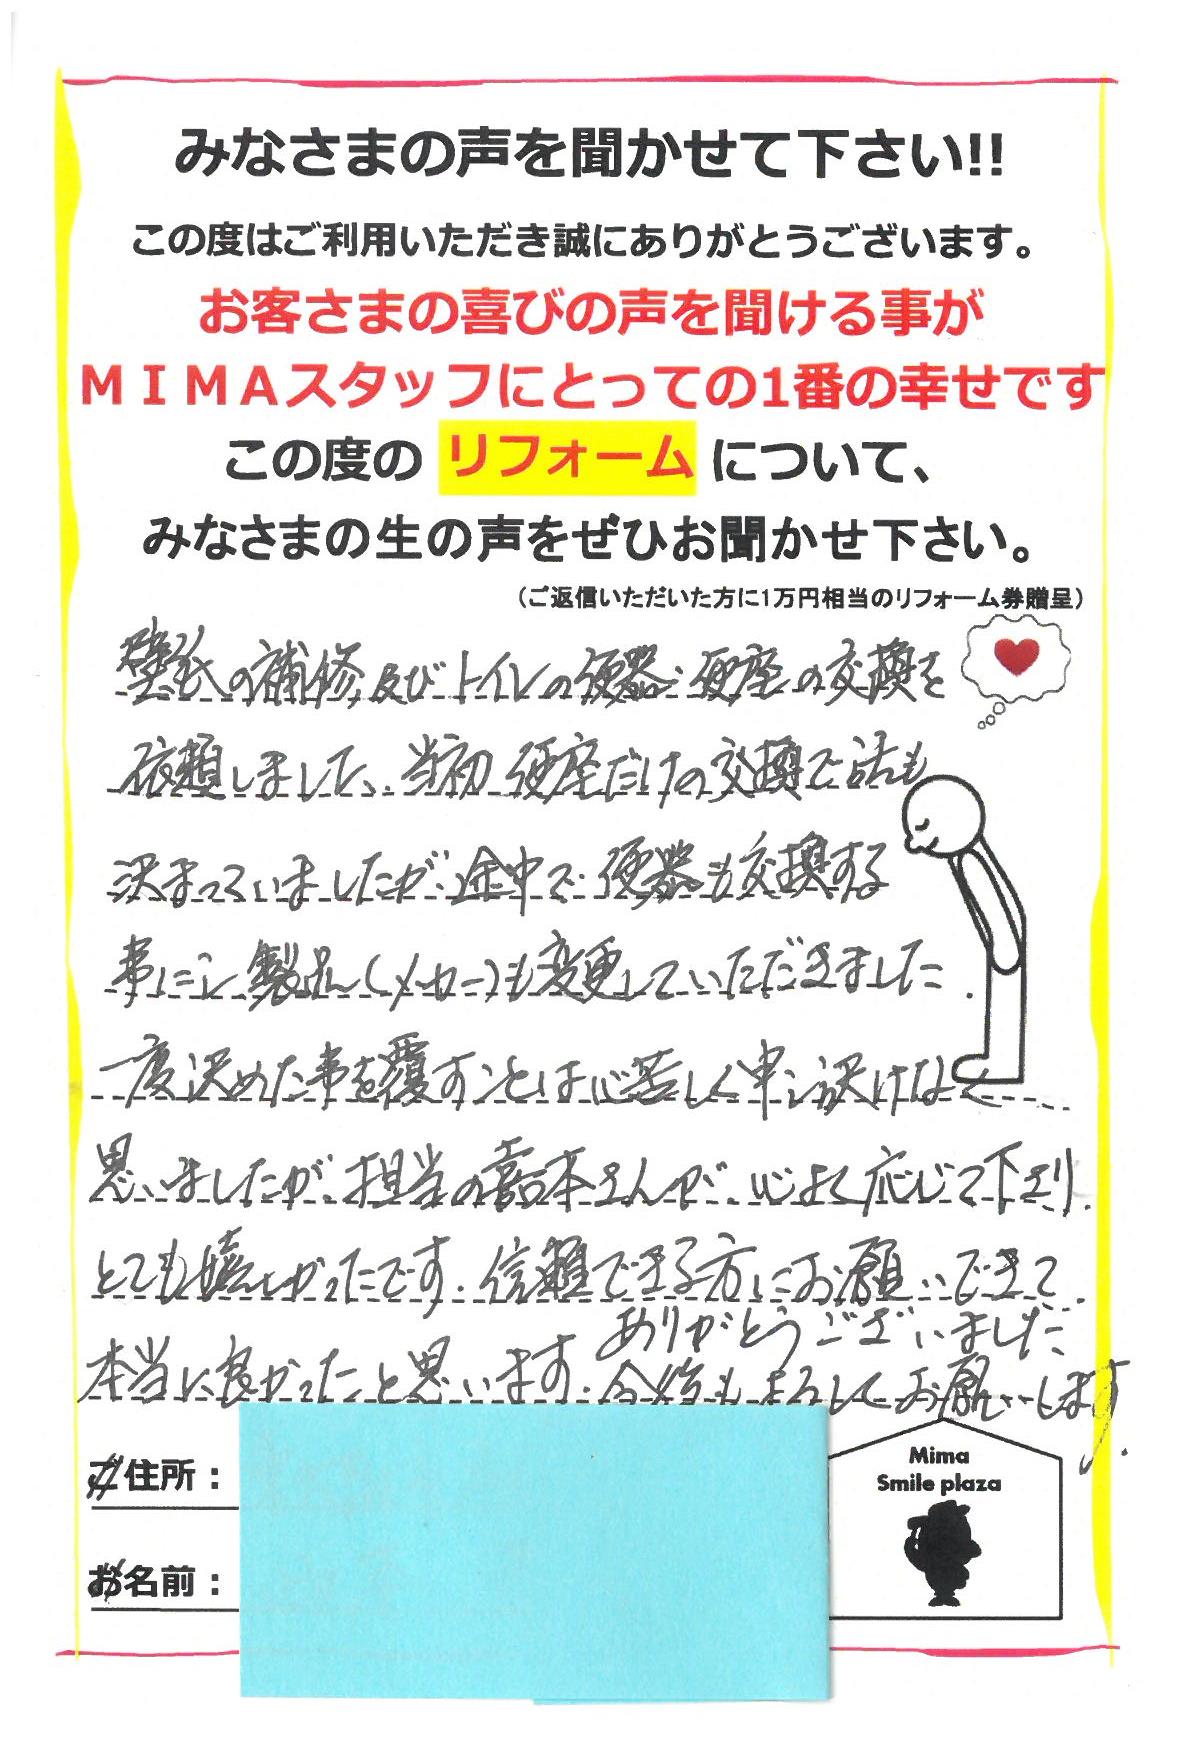 みなさまの声を聞かせて下さい!!
この度はご利用いただき誠にありがとうございます。
お客さまの喜びの声を聞ける事が
ＭＩＭＡスタッフにとっての1番の幸せです
この度の リフォーム について、
みなさまの生の声をぜひお聞かせ下さい。
（ご返信いただいた方に1万円相当のリフォーム券贈呈）
壁紙の補修、及びトイレの便器・便座の交換を
依頼しました、当初 便座だけの交換で話も
決まっていましたが、途中で 便器も交換する
事にし 製品(メーカー)も変更していただきました.
一度決めた事を覆すことは心苦しく申し訳けなく
思いましたが、担当の嘉本さんが、心よく応じて下さり.
とても嬉しかったです. 信頼できる方にお願いできて.
ありがとうございました
本当に良かったと思います. 今後もよろしくお願いします.
ご住所：
お名前：
Mima
Smile plaza